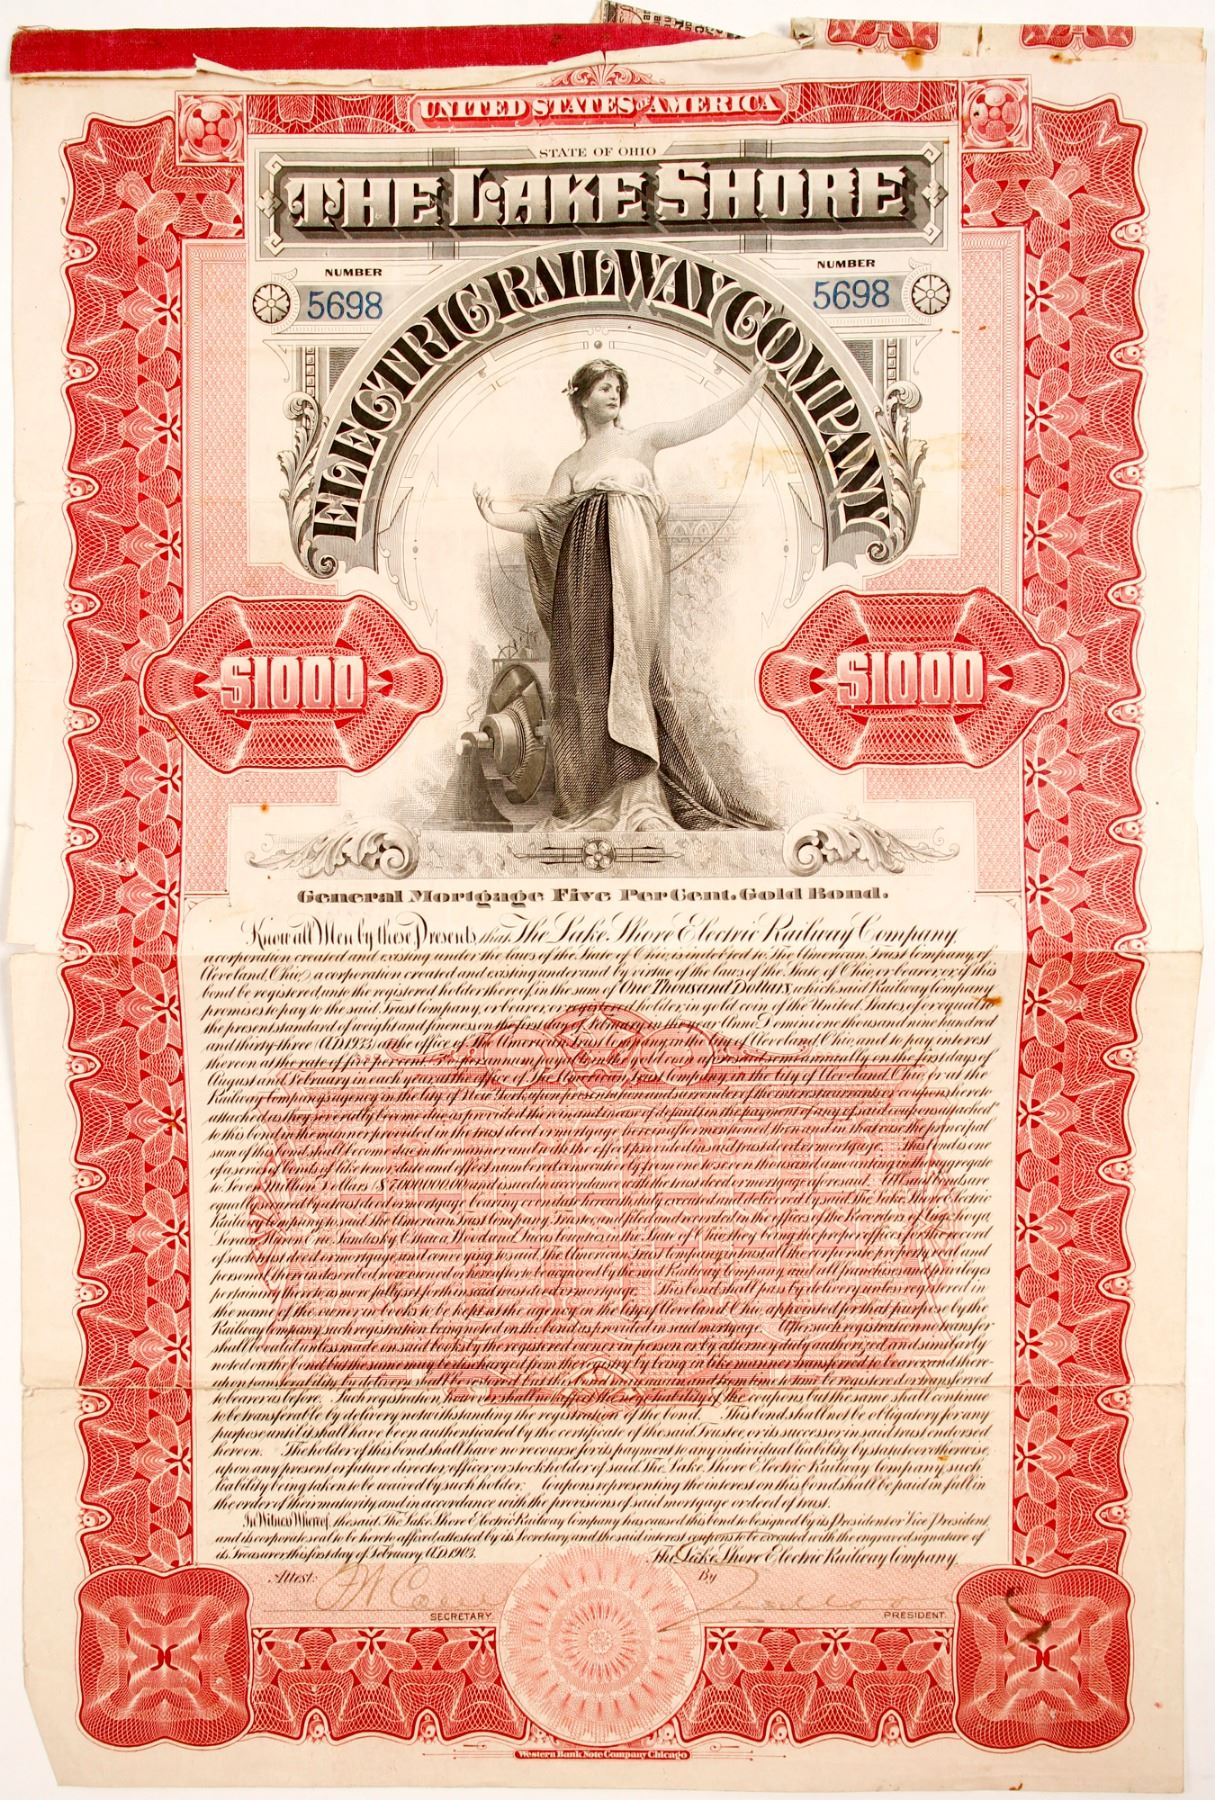 UNITED STATES OF AMERICA
STATE OF OHIO
THE LAKE SHORE
ELECTRIC RAILWAY COMPANY
NUMBER
5698
NUMBER
5698
$1000
$1000
General Mortgage Five Per Cent. Gold Bond.
Know all Men by these Presents, that The Lake Shore Electric Railway Company,
a corporation created and existing under the laws of the State of Ohio, is indebted to The American Trust Company, of
Cleveland, Ohio, a corporation created and existing under and by virtue of the laws of the State of Ohio, or bearer, or, if this
bond be registered, unto the registered holder thereof, in the sum of One Thousand Dollars, which said Railway Company
promises to pay to the said Trust Company, or bearer, or registered holder, in gold coin of the United States, of or equal to
the present standard of weight and fineness on the first day of February in the year Anno Domini one thousand nine hundred
and thirty-three (A.D. 1933) at the office of The American Trust Company, in the City of Cleveland, Ohio, and to pay interest
thereon at the rate of five per cent. 5% per annum, payable in the gold coin aforesaid semi-annually on the first days of
August and February in each year, at the office of The American Trust Company in the City of Cleveland, Ohio, or at the
Railway Company's agency in the City of New York, upon presentation and surrender of the interest warrants or coupons hereto
attached as they severally become due, as provided therein and in case of default in the payment of any of said coupons attached
to this bond in the manner provided in the trust deed or mortgage hereinafter mentioned then and in that case the principal
sum of this bond shall become due in the manner and with the effect provided in said trust deed or mortgage. This bond is one
of a series of bonds of like tenor, date and effect numbered consecutively from one to seven thousand, amounting in the aggregate
to Seven Million Dollars $7,000,000.00 and issued in accordance with the trust deed or mortgage aforesaid. All said bonds are
equally secured by a trust deed or mortgage, bearing even date herewith, duly executed and delivered by said The Lake Shore Electric
Railway Company to said The American Trust Company, Trustee, and filed and recorded in the offices of the Recorders of Cuyahoga
Lorain, Huron, Erie, Sandusky, Ottawa, Wood and Lucas Counties, in the State of Ohio, they being the proper offices for the record
of such trust deeds or mortgages, and conveying to said The American Trust Company, in trust, all the corporate property, real and
personal, therein described, now owned or hereafter to be acquired by the said Railway Company, and all franchises and privileges
pertaining thereto, as more fully set forth in said trust deed or mortgage. This bond shall pass by delivery, unless registered in
the name of the owner on books to be kept at the agency in the City of Cleveland, Ohio, appointed for that purpose by the
Railway Company, such registration being noted on the bond as provided in said mortgage. After such registration no transfer
shall be valid unless made on said books by the registered owner in person or by attorney duly authorized, and similarly
noted on the bond but the same may be discharged from the registry by being in like manner transferred to bearer and there-
upon transferability by delivery shall be restored but this bond may again and from time to time be registered or transferred
to bearer as before. Such registration, however, shall not affect the negotiability of the coupons but the same shall continue
to be transferable by delivery notwithstanding the registration of the bond. This bond shall not be obligatory for any
purpose until it shall have been authenticated by the certificate of the said Trustee or its successor in said trust endorsed
hereon. The holder of this bond shall have no recourse for its payment to any individual liability by statute or otherwise,
upon any present or future director, officer or stockholder of said The Lake Shore Electric Railway Company, such
liability being taken to be waived by such holder. Coupons representing the interest on this bond shall be paid in full in
the order of their maturity and in accordance with the provisions of said mortgage or deed of trust.
In Witness Whereof, the said The Lake Shore Electric Railway Company has caused this bond to be signed by its President or Vice President
and its corporate seal to be hereto affixed, attested by its Secretary, and the said interest coupons to be executed with the engraved signature of
its Treasurer, this first day of February, A.D. 1903.
The Lake Shore Electric Railway Company,
Attest:
SECRETARY.
By
PRESIDENT.
Western Bank Note Company Chicago